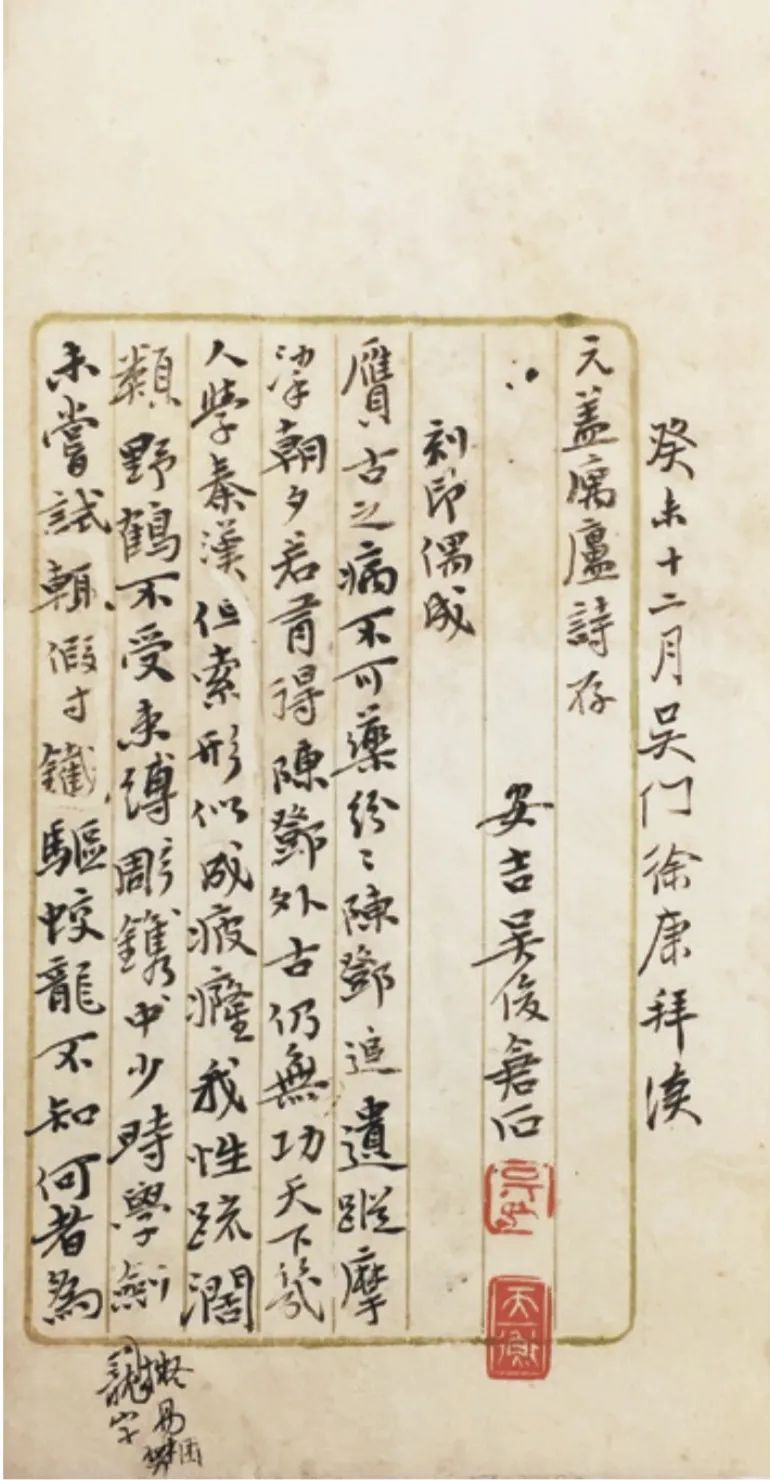 癸未十二月吴门徐康拜读
元盖寓廬詩存
安吉吴俊倉石
天衡
刻印偶成
贗古之病不可藥紛〻陳鄧追遺蹤摩
挲朝夕若有得陳鄧外古仍無功天下幾
人學秦漢但索形似成疲癃我性疏闊
類野鶴不受束縛雕鐫中少時學劍
未嘗試輒假寸鐵驅蛟龍不知何者為
擬易
字